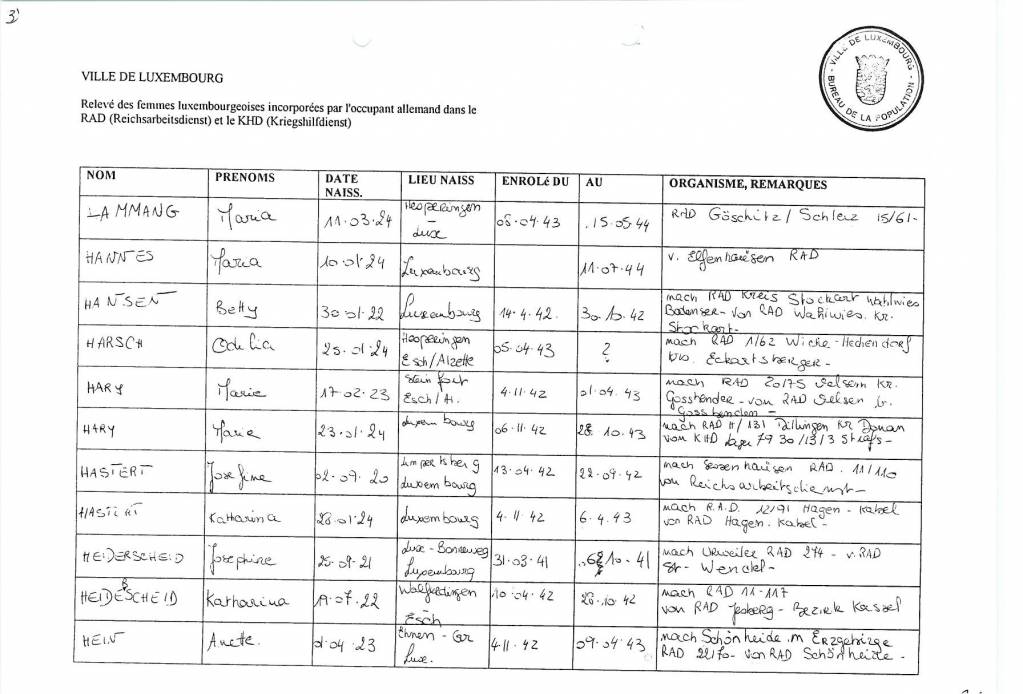 3)
VILLE DE LUXEMBOURG
BUREAU DE LA POPULATION
VILLE DE LUXEMBOURG
Relevé des femmes luxembourgeoises incorporées par l'occupant allemand dans le
RAD (Reichsarbeitsdienst) et le KHD (Kriegshilfdienst)
NOM PRENOMS DATE NAISS. LIEU NAISS ENROLé DU AU ORGANISME, REMARQUES
LAMMANG Maria 11.03.24 Hesperingen - Luxe 05.04.43 15.05.44 RAD Göschitz / Schleiz 15/61-
HANNES Maria 10.01.24 Luxembourg 11.07.44 v. Elfenhaüsen RAD
HANSEN Betty 30.01.22 Luxembourg 14.4.42. 30.10.42 nach RAD Kreis Stockart Wahlwies
Bodensee - von RAD Wahlwies. Kr.
Stockart-
HARSCH Odelia 25.01.24 Hesperingen Esch/Alzette 05.04.43 ? nach RAD 1/62 Wiche-Hechendorf
Eckartsberger-
HARY Marie 17-02.23 Steinfort Esch/A. 4.11.42 01.04.43 nach RAD 20175 Kr.
von RAD
HARY Marie 23.01.24 Luxembourg 06.11.42 28.10.43 nach RAD 131 Dillingen Kr Donau
vom KHD Lager 79 30/13/3
HASTERT Josefine 02.09.20 Limpertsberg Luxembourg 13.04.42 22.09.42 nach haüsen RAD. 11/110
von Reichsarbeitsdienst-
HASTERT Katharina 28.01.24 Luxembourg 4.11.42 6.4.43 nach R.A.D. 12/91 Hagen - Kabel
von RAD Hagen. Kabel-
HEIDERSCHEID Josephine 25.09.21 Luxe-Bonneweg Luxembourg 31.03.41 10.41 nach Urweiler RAD 274 - v. RAD
St- Wendel-
HEIDESCHEID Katharina 07.22 Walferdingen Esch 10.04.42 28.10.42 nach RAD 11-117
von RAD Jesberg - Bezirk Kassel
HEIN Anette. 04.23 Ehnen - Gr Luxe. 4.11.42 09.04.43 nach Schönheide.m Erzgebirge
RAD 22170- von RAD Schönheide-